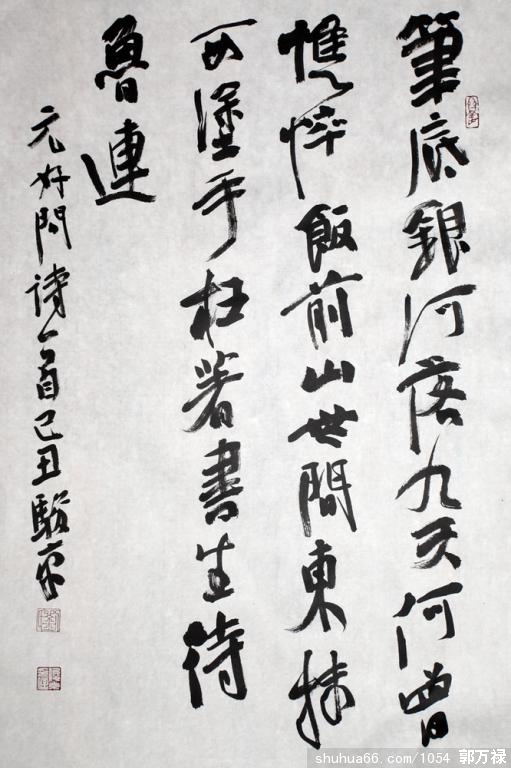 筆底銀河落九天何曾
憔悴飯前山世間東抹
西塗手枉著書生待
魯連
元好問詩一首己丑
shuhua66.com/1054 郭万禄